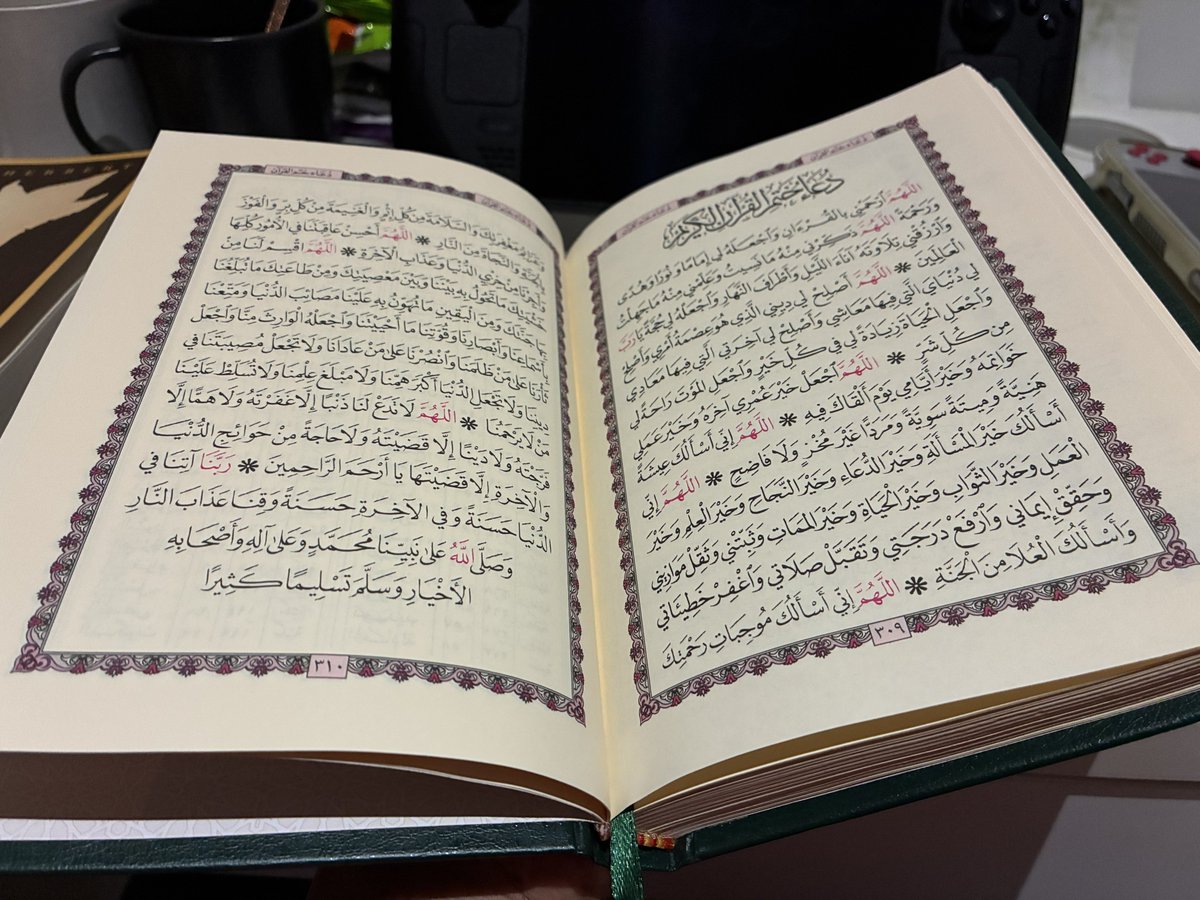 دُعَاء خَتْمِ القُرْآن
دُعَاءُ خَتْمِ القُرْآنِ الكَرِيمِ
اللَّهُمَّ ٱرْحَمْنِي بِالقُرْءَانِ وَٱجْعَلْهُ لِي إِمَامًا وَنُورًا وَهُدًى
وَرَحْمَةً اللَّهُمَّ ذَكِّرْنِي مِنْهُ مَا نَسِيتُ وَعَلِّمْنِي مِنْهُ مَا جَهِلْتُ
وَٱرْزُقْنِي تِلَاوَتَهُ آنَاءَ اللَّيْلِ وَأَطْرَافَ النَّهَارِ وَٱجْعَلْهُ لِي حُجَّةً يَا رَبَّ
العَالَمِينَ * اللَّهُمَّ أَصْلِحْ لِي دِينِي الَّذِي هُوَ عِصْمَةُ أَمْرِي وَأَصْلِحْ
لِي دُنْيَايَ الَّتِي فِيهَا مَعَاشِي وَأَصْلِحْ لِي آخِرَتِي الَّتِي فِيهَا مَعَادِي
وَٱجْعَلِ الْحَيَاةَ زِيَادَةً لِي فِي كُلِّ خَيْرٍ وَٱجْعَلِ الْمَوْتَ رَاحَةً لِي
مِن كُلِّ شَرٍّ * اللَّهُمَّ ٱجْعَلْ خَيْرَ عُمْرِي آخِرَهُ وَخَيْرَ عَمَلِي
خَوَاتِمَهُ وَخَيْرَ أَيَّامِي يَوْمَ أَلْقَاكَ فِيهِ * اللَّهُمَّ إِنِّي أَسْأَلُكَ عِيشَةً
هَنِيَّةً وَمِيتَةً سَوِيَّةً وَمَرَدًّا غَيْرَ مُخْزٍ وَلَا فَاضِحٍ * اللَّهُمَّ إِنِّي
أَسْأَلُكَ خَيْرَ الْمَسْأَلَةِ وَخَيْرَ الدُّعَاءِ وَخَيْرَ النَّجَاحِ وَخَيْرَ الْعِلْمِ وَخَيْرَ
الْعَمَلِ وَخَيْرَ الثَّوَابِ وَخَيْرَ الْحَيَاةِ وَخَيْرَ الْمَمَاتِ وَثَبِّتْنِي وَثَقِّلْ مَوَازِينِي
وَحَقِّقْ إِيمَانِي وَٱرْفَعْ دَرَجَتِي وَتَقَبَّلْ صَلَاتِي وَٱغْفِرْ خَطِيئَاتِي
وَأَسْأَلُكَ الْعُلَا مِنَ الْجَنَّةِ * اللَّهُمَّ إِنِّي أَسْأَلُكَ مُوجِبَاتِ رَحْمَتِكَ
٣٠٩
دُعَاء خَتْمِ القُرْآن
وَعَزَائِمَ مَغْفِرَتِكَ وَالسَّلَامَةَ مِنْ كُلِّ إِثْمٍ وَالْغَنِيمَةَ مِنْ كُلِّ بِرٍّ وَالْفَوْزَ
بِالْجَنَّةِ وَالنَّجَاةَ مِنَ النَّارِ * اللَّهُمَّ أَحْسِنْ عَاقِبَتَنَا فِي الْأُمُورِ كُلِّهَا
وَأَجِرْنَا مِنْ خِزْيِ الدُّنْيَا وَعَذَابِ الْآخِرَةِ * اللَّهُمَّ ٱقْسِمْ لَنَا مِنْ
خَشْيَتِكَ مَا تَحُولُ بِهِ بَيْنَنَا وَبَيْنَ مَعْصِيَتِكَ وَمِنْ طَاعَتِكَ مَا تُبَلِّغُنَا
بِهَا جَنَّتَكَ وَمِنَ الْيَقِينِ مَا تُهَوِّنُ بِهِ عَلَيْنَا مَصَائِبَ الدُّنْيَا وَمَتِّعْنَا
بِأَسْمَاعِنَا وَأَبْصَارِنَا وَقُوَّتِنَا مَا أَحْيَيْتَنَا وَٱجْعَلْهُ الْوَارِثَ مِنَّا وَٱجْعَلْ
ثَأْرَنَا عَلَىٰ مَنْ ظَلَمَنَا وَٱنْصُرْنَا عَلَىٰ مَنْ عَادَانَا وَلَا تَجْعَلْ مُصِيبَتَنَا فِي
دِينِنَا وَلَا تَجْعَلِ الدُّنْيَا أَكْبَرَ هَمِّنَا وَلَا مَبْلَغَ عِلْمِنَا وَلَا تُسَلِّطْ عَلَيْنَا
مَنْ لَا يَرْحَمُنَا * اللَّهُمَّ لَا تَدَعْ لَنَا ذَنْبًا إِلَّا غَفَرْتَهُ وَلَا هَمًّا إِلَّا
فَرَّجْتَهُ وَلَا دَيْنًا إِلَّا قَضَيْتَهُ وَلَا حَاجَةً مِنْ حَوَائِجِ الدُّنْيَا
وَالْآخِرَةِ إِلَّا قَضَيْتَهَا يَا أَرْحَمَ الرَّاحِمِينَ * رَبَّنَا آتِنَا فِي
الدُّنْيَا حَسَنَةً وَفِي الْآخِرَةِ حَسَنَةً وَقِنَا عَذَابَ النَّارِ
وَصَلَّى اللَّهُ عَلَىٰ نَبِيِّنَا مُحَمَّدٍ وَعَلَىٰ آلِهِ وَأَصْحَابِهِ
الْأَخْيَارِ وَسَلَّمَ تَسْلِيمًا كَثِيرًا
٣١٠
HERBERT